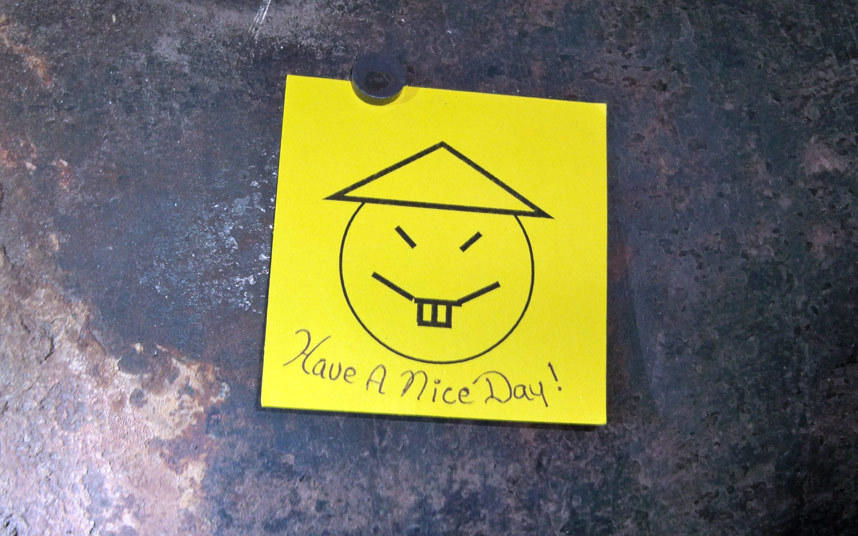 Have A Nice Day!